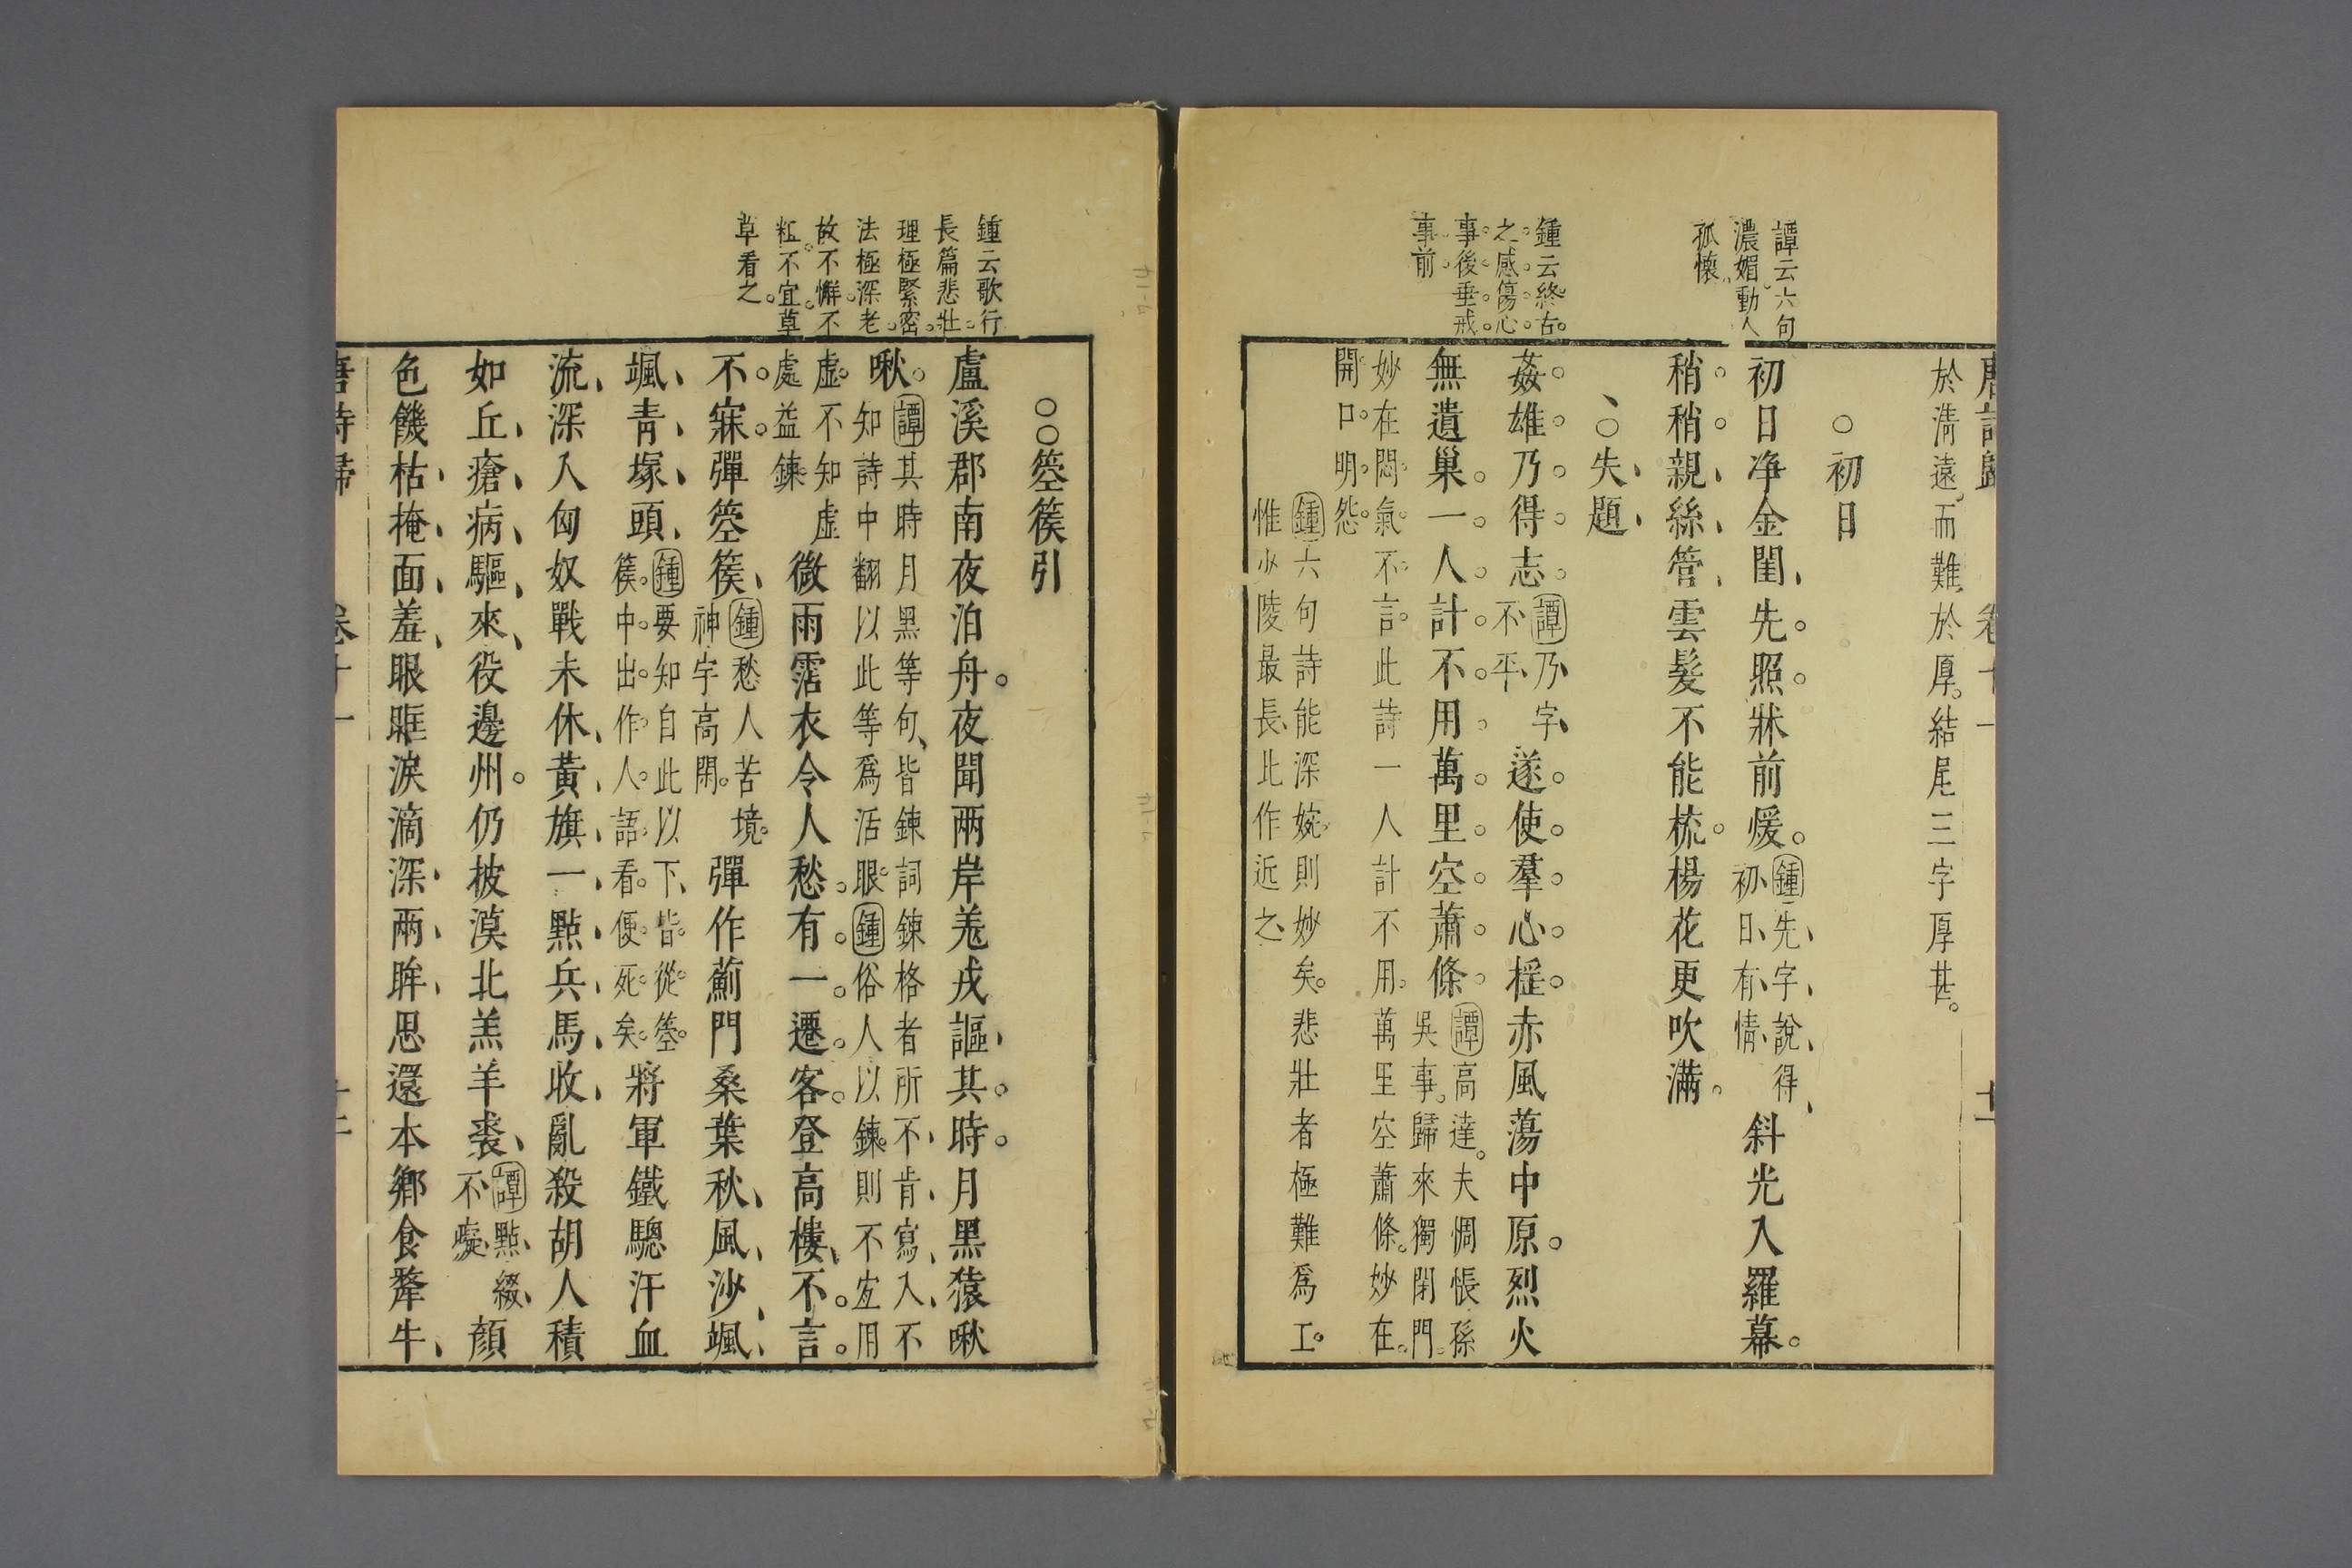 唐詩歸 卷十一 十二
於淸遠而難於厚結尾三字厚甚
○初日
譚云六句
濃媚動人
孤懷
初日净金閨先照牀前煖
鍾先字說得
初日有情
斜光入羅幕
稍稍親絲管雲髮不能梳楊花更吹滿
○失題
鍾云終古
之感傷心
事後垂戒
事前
姦雄乃得志
譚乃字
不平
遂使羣心揺赤風蕩中原烈火
無遺巢一人計不用萬里空蕭條
譚高達夫惆悵孫
吳事歸來獨閉門
妙在悶氣不言此詩一人計不用萬里空蕭條妙在
開口明怨
鍾六句詩能深婉則妙矣悲壯者極難爲工
惟少陵最長此作近之
○○箜篌引
鍾云歌行
長篇悲壯
理極緊密
法極深老
故不懈不
粗不宜草
草看之
盧溪郡南夜泊舟夜聞兩岸羗戎謳其時月黑猿啾
啾
譚其時月黑等句皆鍊詞鍊格者所不肯寫入不
知詩中翻以此等爲活眼鍾俗人以鍊則不宐用
虚不知虚
處益鍊
微雨霑衣令人愁有一遷客登高樓不言
不寐彈箜篌
鍾愁人苦境
神字高閑
彈作薊門桑葉秋風沙颯
颯青塚頭
鍾要知自此以下皆從箜
篌中出作人語看便死矣
將軍鐵驄汗血
流深入匈奴戰未休黃旗一點兵馬收亂殺胡人積
如丘瘡病驅來役邊州仍披漠北羔羊裘
譚點綴
不癡
顏
色饑枯掩面羞眼眶淚滴深兩眸思還本鄉食犛牛
唐詩歸 卷十一 十二